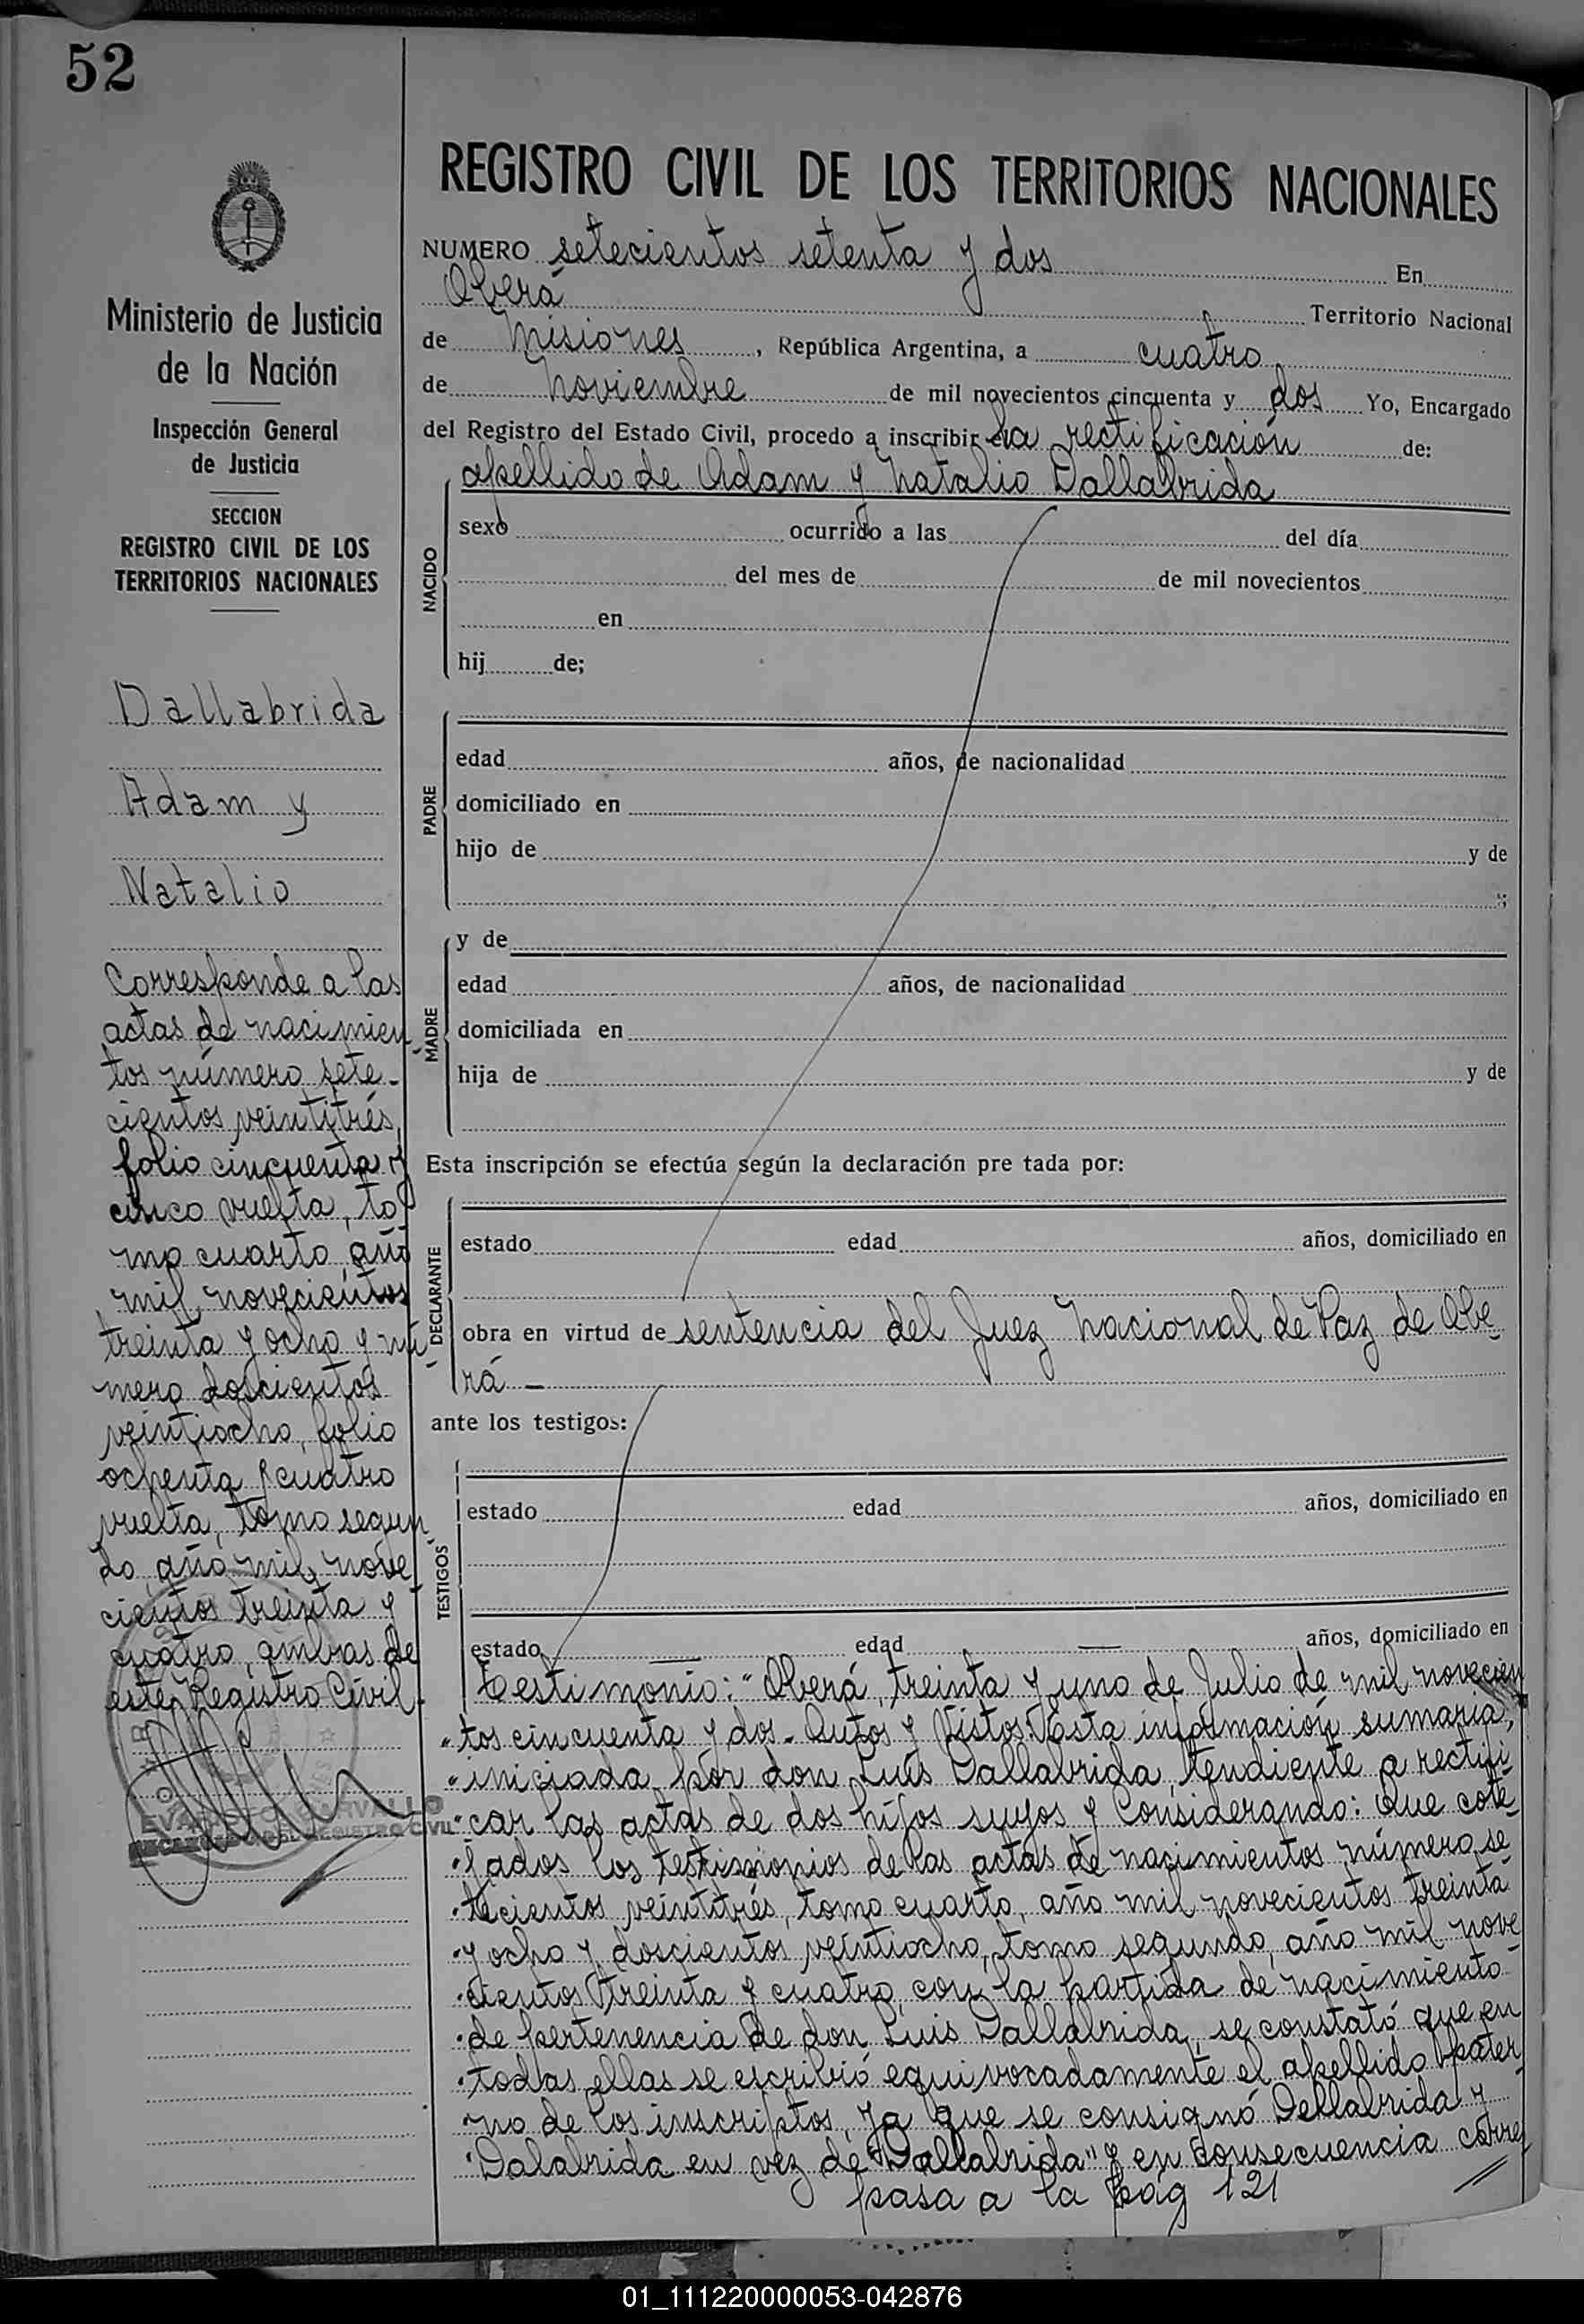 52
Ministerio de Justicia
de la Nación
Inspección General
de Justicia
SECCION
REGISTRO CIVIL DE LOS
TERRITORIOS NACIONALES
Dallabrida
Adam y
Natalio
Corresponde a las
actas de nacimien
tos número sete-
cientos veintitrés,
folio cincuenta y
cinco vuelta, to-
mo cuarto, año
mil novecientos
treinta y ocho y nú-
mero doscientos
veintiocho, folio
ochenta y cuatro
vuelta, tomo segun-
do año mil nove-
cientos treinta y
cuatro, ambas de
este Registro Civil.
REGISTRO CIVIL DE LOS TERRITORIOS NACIONALES
NUMERO setecientos setenta y dos En
Oberá Territorio Nacional
de Misiones, República Argentina, a cuatro
de Noviembre de mil novecientos cincuenta y dos Yo, Encargado
del Registro del Estado Civil, procedo a inscribir la rectificación de:
apellido de Adam y Natalio Dallabrida
NACIDO
sexo ocurrido a las del día
del mes de de mil novecientos
en
hij de;
PADRE
edad años, de nacionalidad
domiciliado en
hijo de y de
;
MADRE
y de
edad años, de nacionalidad
domiciliada en
hija de y de
Esta inscripción se efectúa según la declaración pre tada por:
DECLARANTE
estado edad años, domiciliado en
obra en virtud de sentencia del Juez Nacional de Paz de Obe-
rá -
ante los testigos:
TESTIGOS
estado edad años, domiciliado en
estado edad años, domiciliado en
Testimonio: "Oberá, treinta y uno de Julio de mil novecien
"tos cincuenta y dos. Autos y Vistos: Esta información sumaria,
"iniciada por don Luis Dallabrida, tendiente a rectifi-
"car las actas de dos hijos suyos y Considerando: Que cote-
"jados los testimonios de las actas de nacimientos número se-
"tecientos veintitrés, tomo cuarto, año mil novecientos treinta
"y ocho y doscientos veintiocho, tomo segundo, año mil nove-
"cientos treinta y cuatro, con la partida de nacimiento
"de pertenencia de don Luis Dallabrida, se constató que en
"todas ellas se escribió equivocadamente el apellido pater-
"no de los inscriptos, ya que se consignó Dellabrida y
"Dalabrida en vez de "Dallabrida" y en consecuencia corres
pasa a la pág 121
01_111220000053-042876